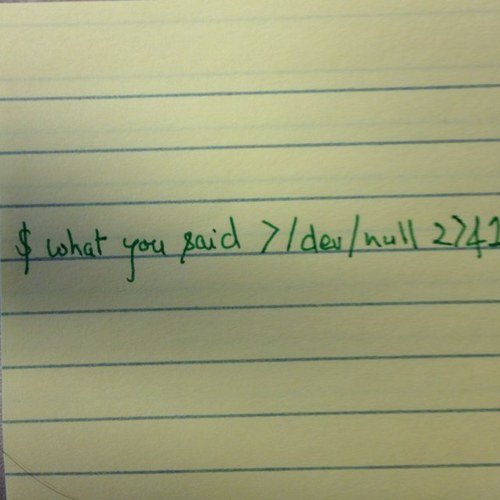 $ what you said >/dev/null 2>&1